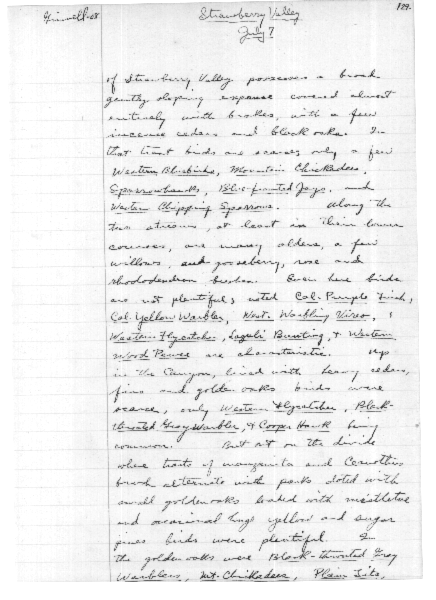 Grinnell-08
Strawberry Valley
129.
July 7
of Strawberry Valley possesses a broad
gently sloping expanse covered almost
entirely with brakes, with a few
incense cedars and black oaks. In
that tract birds are scarce; only a few
Western Bluebirds, Mountain Chickadees,
Sparrowhawks, Blue-fronted Jays, and
Western Chipping Sparrows. Along the
two streams, at least in their lower
courses, are many alders, a few
willows, and gooseberry, rose and
rhododendron bushes. Even here birds
are not plentiful; noted Cal. Purple Finch,
Cal. Yellow Warbler, West. Warbling Vireo,
Western Flycatcher, Lazuli Bunting, & Western
Wood Pewee are characteristic. Up
in the Canyon, lined with heavy cedars,
firs and golden oaks birds were
scarce, only Western Flycatcher, Black-
throated Gray Warbler, & Cooper Hawk being
common. But out on the divide
where tracts of manzanita and Ceanothus
brush alternate with parks dotted with
small golden oaks loaded with mistletoe
and occasional huge yellow and sugar
pines birds were plentiful. In
the golden oaks were Black-throated Gray
Warblers, Mt. Chickadees, Plain Tits,